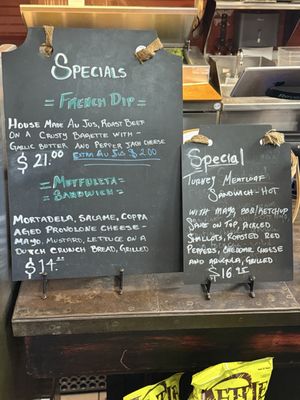 Specials
= French Dip =
House Made Au Jus, Roast Beef
on a Crusty Baguette with -
Garlic Butter and Pepper Jack Cheese
$21.00 Extra Au Jus $2.00
= Muffuleta =
Sandwich
Mortadela, Salame, Coppa
Aged Provolone Cheese -
Mayo, Mustard, Lettuce on a
Dutch Crunch Bread, Grilled
$14.00
Special
Turkey Meatloaf
Sandwich - Hot
with mayo, BBQ/Ketchup
Sauce on Top, Pickled
Shallots, Roasted Red
Peppers, Cheddar Cheese
and Arugula, Grilled
$16.25
KETTLE